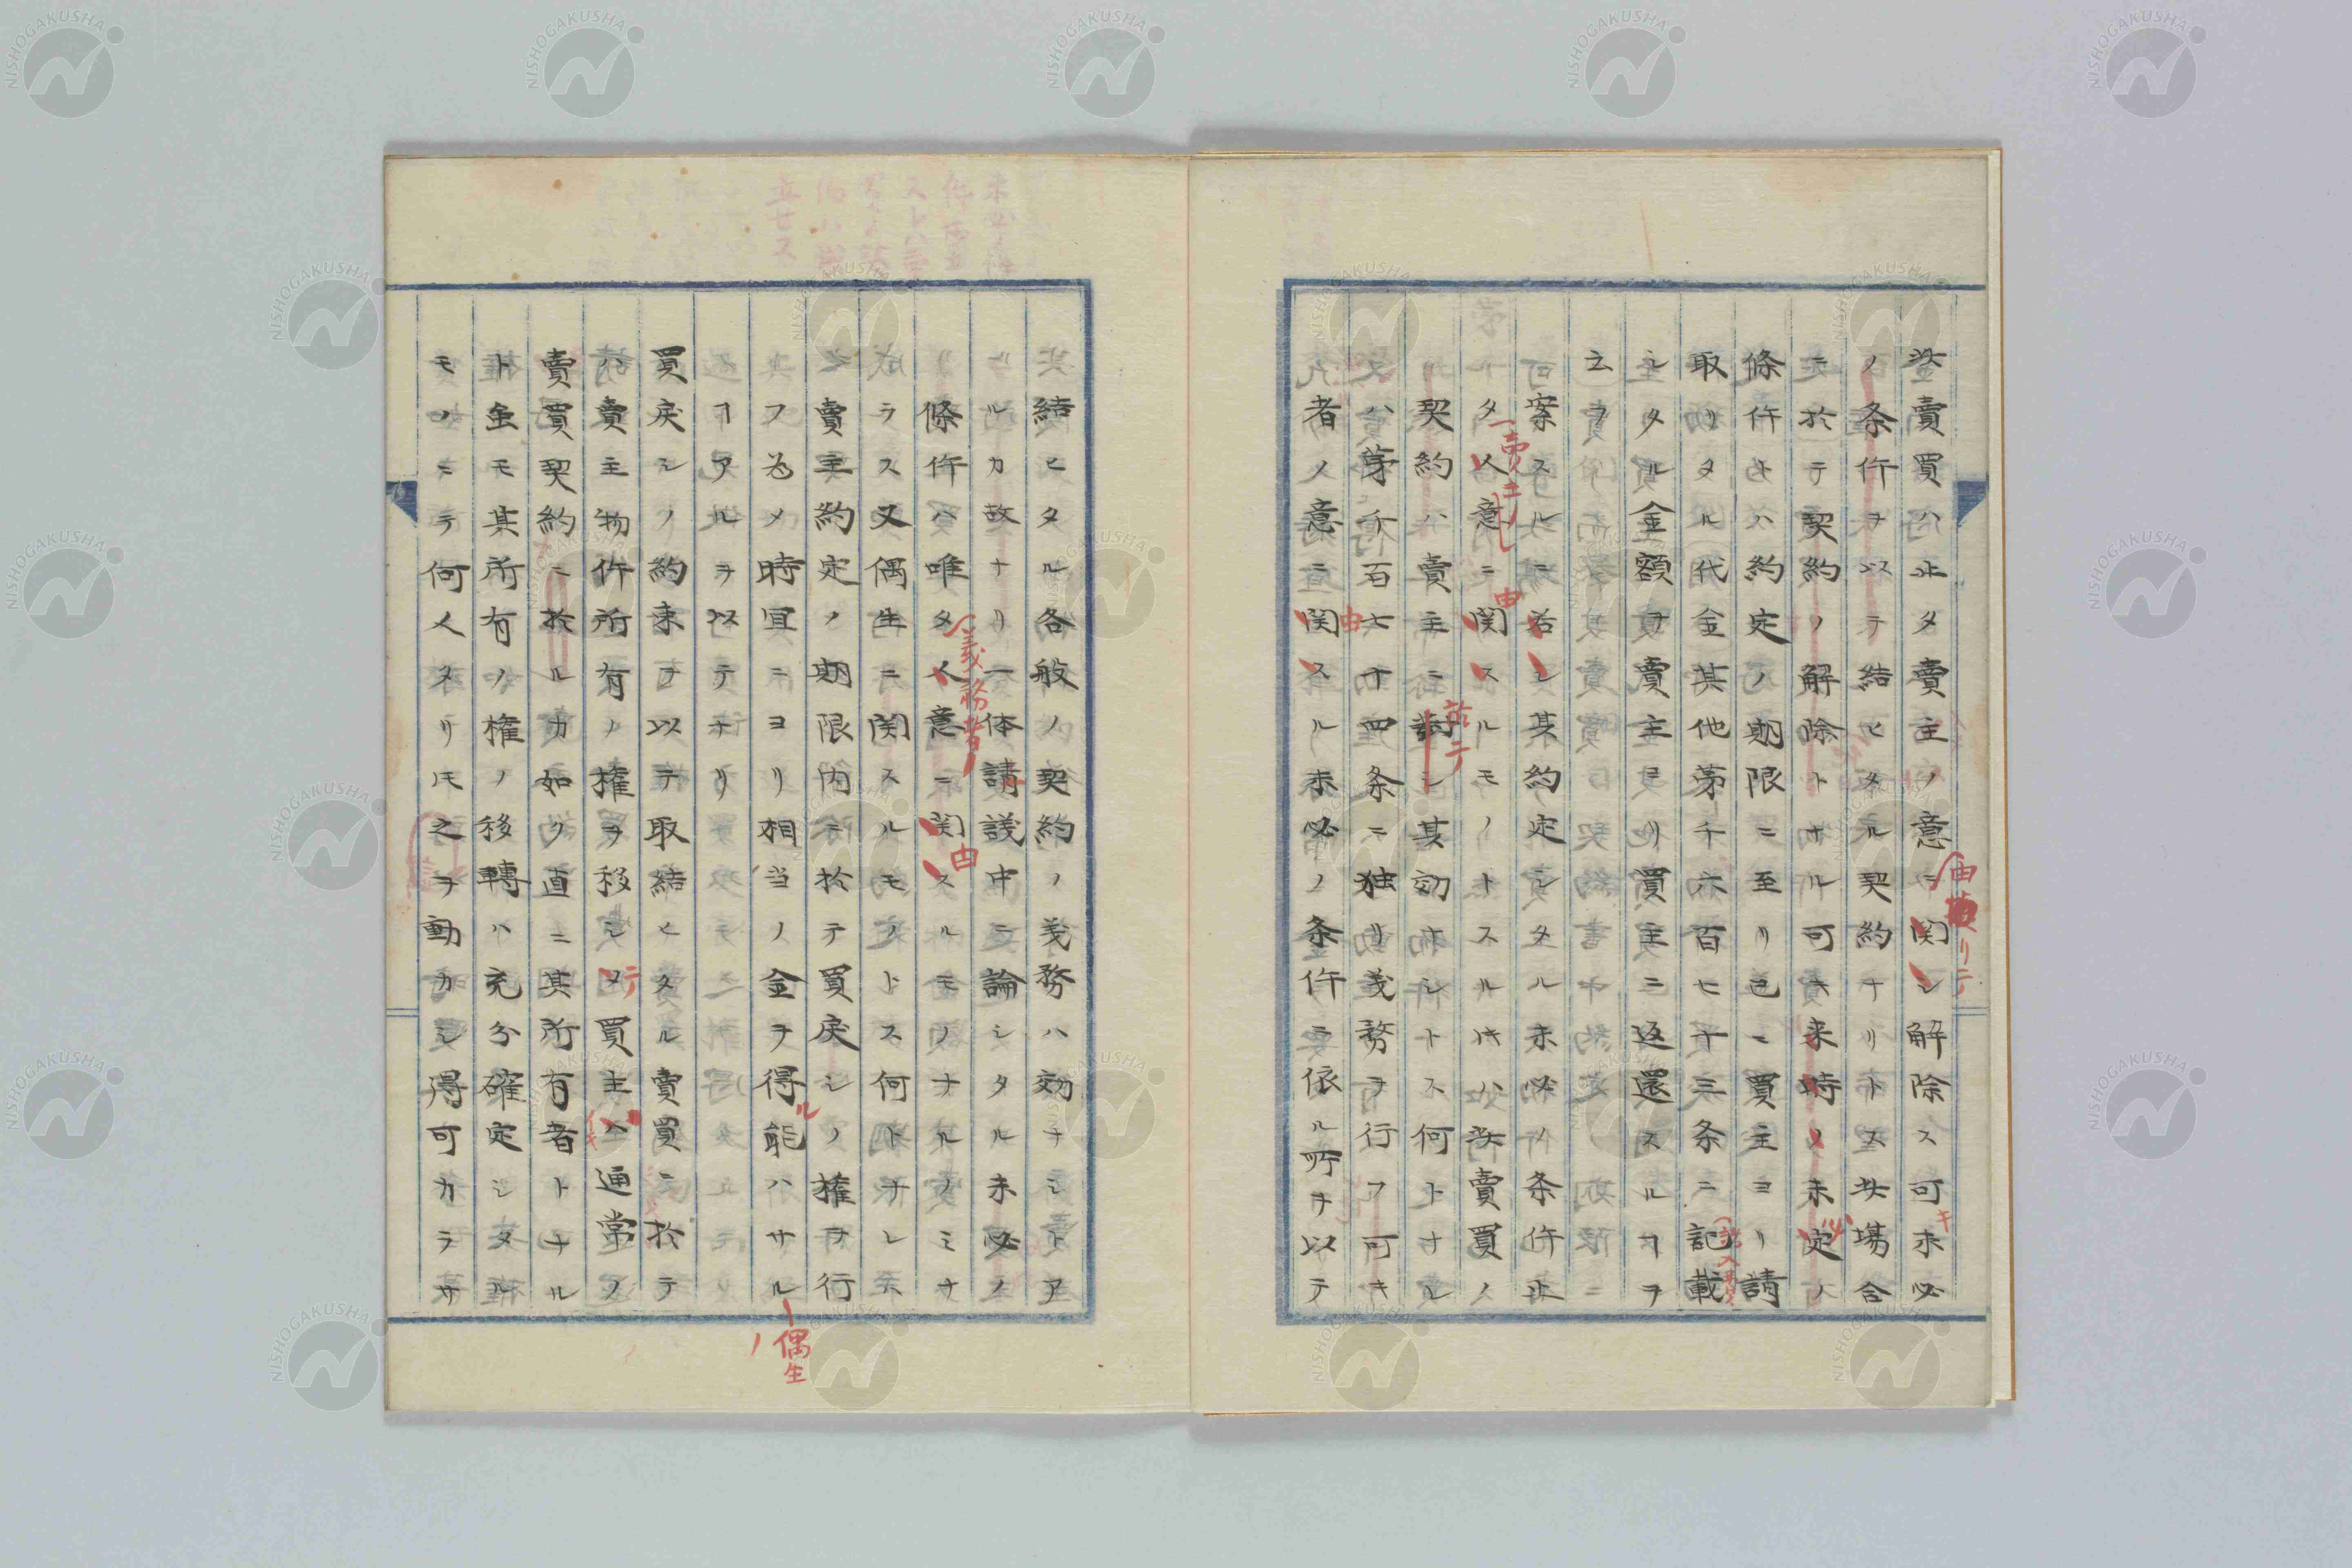 此賣買ハ止タ賣主ノ意ニ関シ解除ス可未必
ノ条件ヲ以テ結ヒタル契約ナリトス此場合
ニ於テ契約ノ解除トナル可キ来時ノ未定ノ
條件トハ約定ノ期限ニ至リ邑ニ買主ヨリ請
取リタル代金其他第千六百七十三条ニ記載
シタル金額ヲ賣主ヨリ買主ニ返還スルヿヲ
云フ
案スルニ若シ其約定シタル未必ノ条件止
タ人意ニ関スルモノトスルトキハ此賣買ノ
契約ハ賣主ニ對シ其効ナシトス何トナル
ハ第千百七十四条ニ独リ義務ヲ行フ可キ
者ノ意ニ関スル未必ノ条件ニ依ル所ヲ以テ
結ヒタル各般ノ契約ノ義務ハ効ナシトア
ルカ故ナリ一体請議中ニ論シタル未必ノ
條件ハ唯タ人意ニ関スルモノナルノミナ
ラス又偶生ニ関スルモノトス何トナレハ
賣主約定ノ期限内ニ於テ買戻シノ権ヲ行
フ為メ時宜ニヨリ相当ノ金ヲ得能ハサル
ヿアルヲ以テナリ
買戻シノ約束ヲ以テ取結ヒタル賣買ニ於テ
ハ賣主物件所有ノ権ヲ移シタ買主ハ通常ノ
賣買契約ニ於ルカ如ク直ニ其所有者トナル
ト虽モ其所有ノ権ノ移轉ハ充分確定シタル
モノニテ何人タリモ之ヲ動カシ得可カラサ
由
キ
記入
賣主
由
於テ
由
義務者
由
テ
ル
偶生
ノ